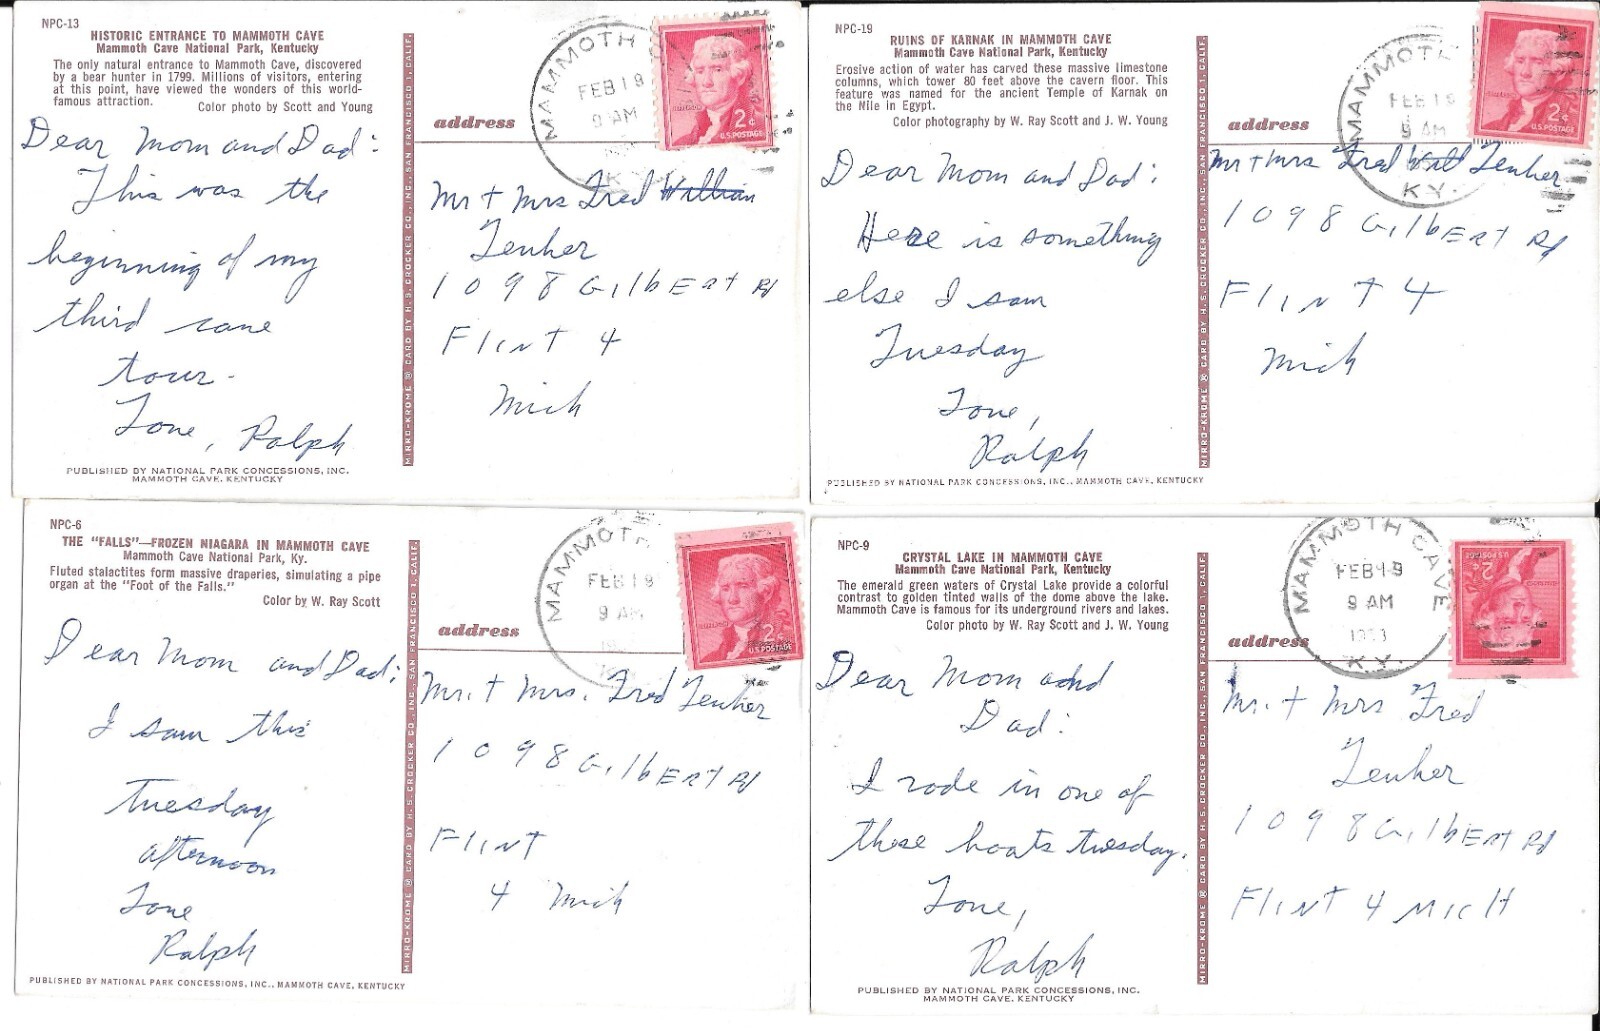 NPC-13
HISTORIC ENTRANCE TO MAMMOTH CAVE
Mammoth Cave National Park, Kentucky
The only natural entrance to Mammoth Cave, discovered
by a bear hunter in 1799. Millions of visitors, entering
at this point, have viewed the wonders of this world-
famous attraction.
Color photo by Scott and Young
Dear Mom and Dad:
This was the
beginning of my
third cane
tour.
Love, Ralph
PUBLISHED BY NATIONAL PARK CONCESSIONS, INC.
MAMMOTH CAVE, KENTUCKY
MIRRO-KROME ® CARD BY H. S. CROCKER CO., INC., SAN FRANCISCO 1, CALIF.
MAMMOTH
FEB 18
9 AM
KY
2¢
U.S. POSTAGE
address
Mr + Mrs Fred William
Tenher
1098 GilbERT Rd
FlinT 4
Mich
NPC-19
RUINS OF KARNAK IN MAMMOTH CAVE
Mammoth Cave National Park, Kentucky
Erosive action of water has carved these massive limestone
columns, which tower 80 feet above the cavern floor. This
feature was named for the ancient Temple of Karnak on
the Nile in Egypt.
Color photography by W. Ray Scott and J. W. Young
Dear Mom and Dad:
Here is something
else I saw
Tuesday
Love,
Ralph
PUBLISHED BY NATIONAL PARK CONCESSIONS, INC., MAMMOTH CAVE, KENTUCKY
MIRRO-KROME ® CARD BY H. S. CROCKER CO., INC., SAN FRANCISCO 1, CALIF.
MAMMOTH
9 AM
KY.
2¢
U.S. POSTAGE
address
Mr + Mrs Fred Will Tenher
1098 GilbERT Rd
FlinT 4
Mich
NPC-6
THE "FALLS"—FROZEN NIAGARA IN MAMMOTH CAVE
Mammoth Cave National Park, Ky.
Fluted stalactites form massive draperies, simulating a pipe
organ at the "Foot of the Falls."
Color by W. Ray Scott
Dear Mom and Dad;
I saw this
Tuesday
afternoon
Love
Ralph
PUBLISHED BY NATIONAL PARK CONCESSIONS, INC., MAMMOTH CAVE, KENTUCKY
MIRRO-KROME ® CARD BY H. S. CROCKER CO., INC., SAN FRANCISCO 1, CALIF.
MAMMOTH
FEB 19
9 AM
2¢
U.S. POSTAGE
address
Mr. + Mrs. Fred Tenher
1098 GilbERT Rd
FlinT
4 Mich
NPC-9
CRYSTAL LAKE IN MAMMOTH CAVE
Mammoth Cave National Park, Kentucky
The emerald green waters of Crystal Lake provide a colorful
contrast to golden tinted walls of the dome above the lake.
Mammoth Cave is famous for its underground rivers and lakes.
Color photo by W. Ray Scott and J. W. Young
Dear Mom and
Dad:
I rode in one of
these boats tuesday.
Love,
Ralph
PUBLISHED BY NATIONAL PARK CONCESSIONS, INC.
MAMMOTH CAVE, KENTUCKY
MIRRO-KROME ® CARD BY H. S. CROCKER CO., INC., SAN FRANCISCO 1, CALIF.
MAMMOTH CAVE
FEB 19
9 AM
KY.
2¢
U.S. POSTAGE
address
Mr. + Mrs Fred
Tenher
1098 GilbERT Rd
FlinT 4 MicH